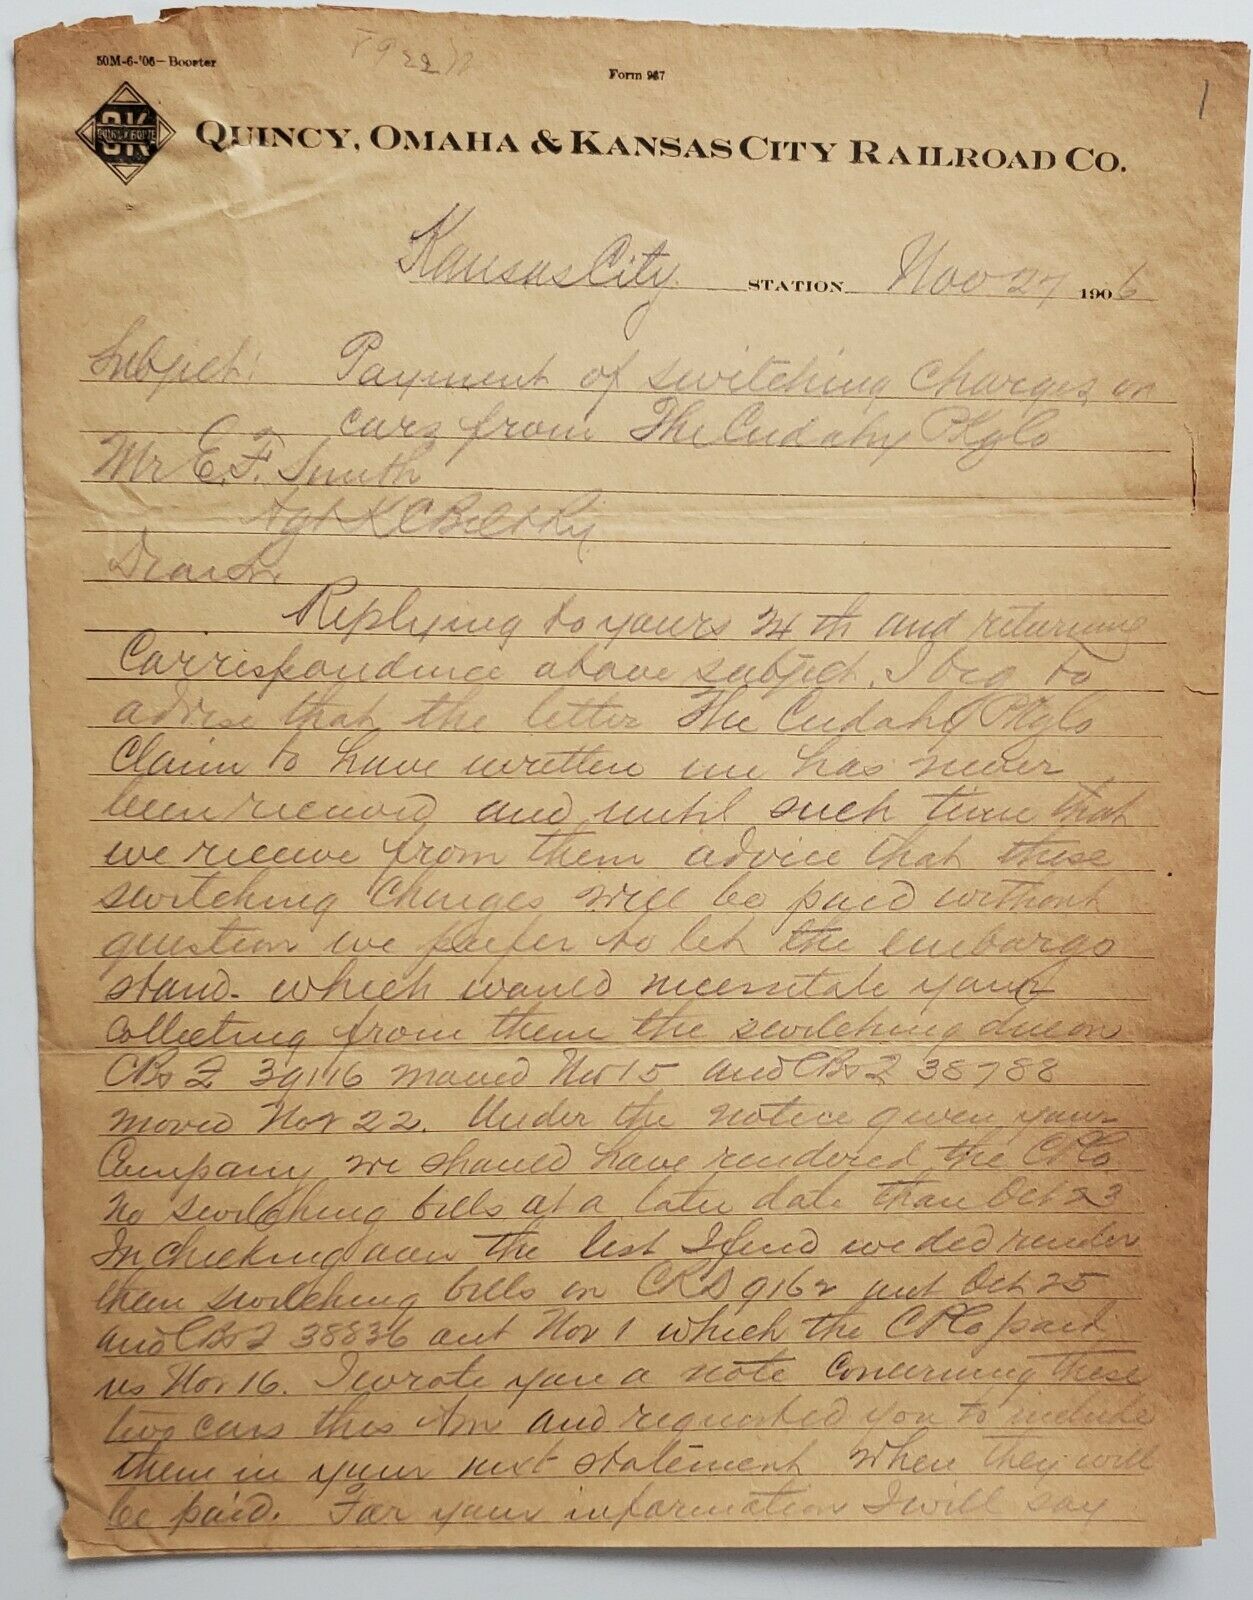 50M-6-'06—Booster
Form 967
OK
QUINCY ROUTE
QUINCY, OMAHA & KANSAS CITY RAILROAD CO.
1
Kansas City STATION Nov 27 1906
Subject: Payment of switching charges on
cars from The Cudahy PkgCo
Mr E. F. Smith
Agt K C Belt Ry.
Dear Sir
Replying to yours 24th and returning
Correspondence above subject, I beg to
advise that the letter The Cudahy PkgCo
Claim to have written me has never
been received and until such time that
we receive from them advice that these
switching charges will be paid without
question we prefer to let the embargo
stand. which would necessitate your
collecting from them the switching due on
CB&Q 39116 moved Nov 15 and CB&Q 38788
moved Nov 22. Under the notice given your
Company we should have rendered the CPCo
no switching bills at a later date than Oct 23
In checking over the list I find we did render
them switching bills on 9162 out Oct 25
and CB&Q 38836 out Nov 1 which the CPCo paid
us Nov 16. I wrote you a note concerning these
two cars this Am and requested you to include
them in your next statement when they will
be paid. For your information I will say